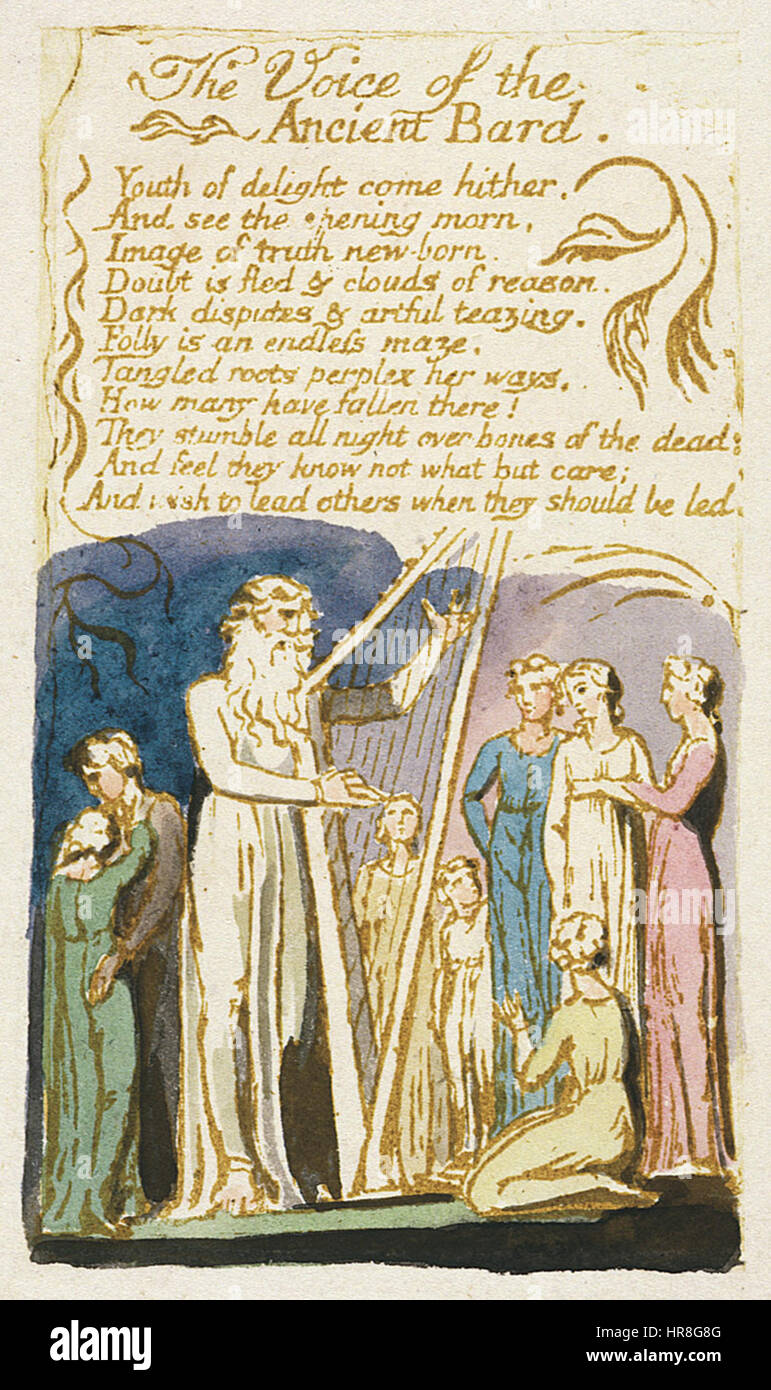 The Voice of the
Ancient Bard.
Youth of delight come hither.
And see the opening morn,
Image of truth new-born.
Doubt is fled & clouds of reason.
Dark disputes & artful teazing.
Folly is an endleſs maze,
Tangled roots perplex her ways,
How many have fallen there!
They stumble all night over bones of the dead;
And feel they know not what but care;
And wish to lead others when they should be led.
alamy
alamy
a
a
alamy
Image ID: HR8G8G
www.alamy.com